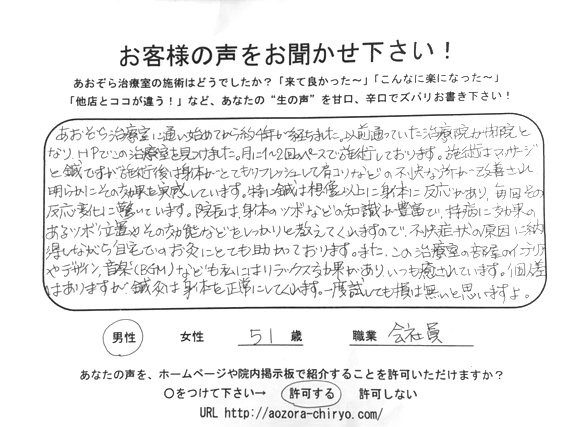 お客様の声をお聞かせ下さい！
あおぞら治療室の施術はどうでしたか？「来て良かった～」「こんなに楽になった～」
「他店とココが違う！」など、あなたの“生の声”を甘口、辛口でズバリお書き下さい！
あおぞら治療室に通い始めてから約1年して経ちました。以前通っていた治療院が閉院と
なり、HPでこの治療室を見つけました。月に1～2回のペースで施術しております。施術はマッサージ
と鍼ですが施術後は身体がとてもリフレッシュして肩コリなどの不快な所が改善され
明らかにその効果を実感しています。特に鍼は想像以上に身体に反応があり、毎回その
反応変化に驚いています。院長は身体のツボなどの知識が豊富で、持病に効果の
あるツボ位置やその効能などをしっかりと教えてくれますので、不快症状の原因に納
得しながら自宅でのお灸にとても助かっております。また、この治療室の部屋のインテリア
やデザイン、音楽(BGM)なども私にはリラックス効果があり、いつも癒されています。個人差
はありますが鍼灸は身体を正常にしてくれます。一度試しても損は無いと思いますよ。
男性 女性 51 歳 職業 会社員
あなたの声を、ホームページや院内掲示板で紹介することを許可いただけますか？
〇をつけて下さい→ 許可する 許可しない
URL http://aozora-chiryo.com/